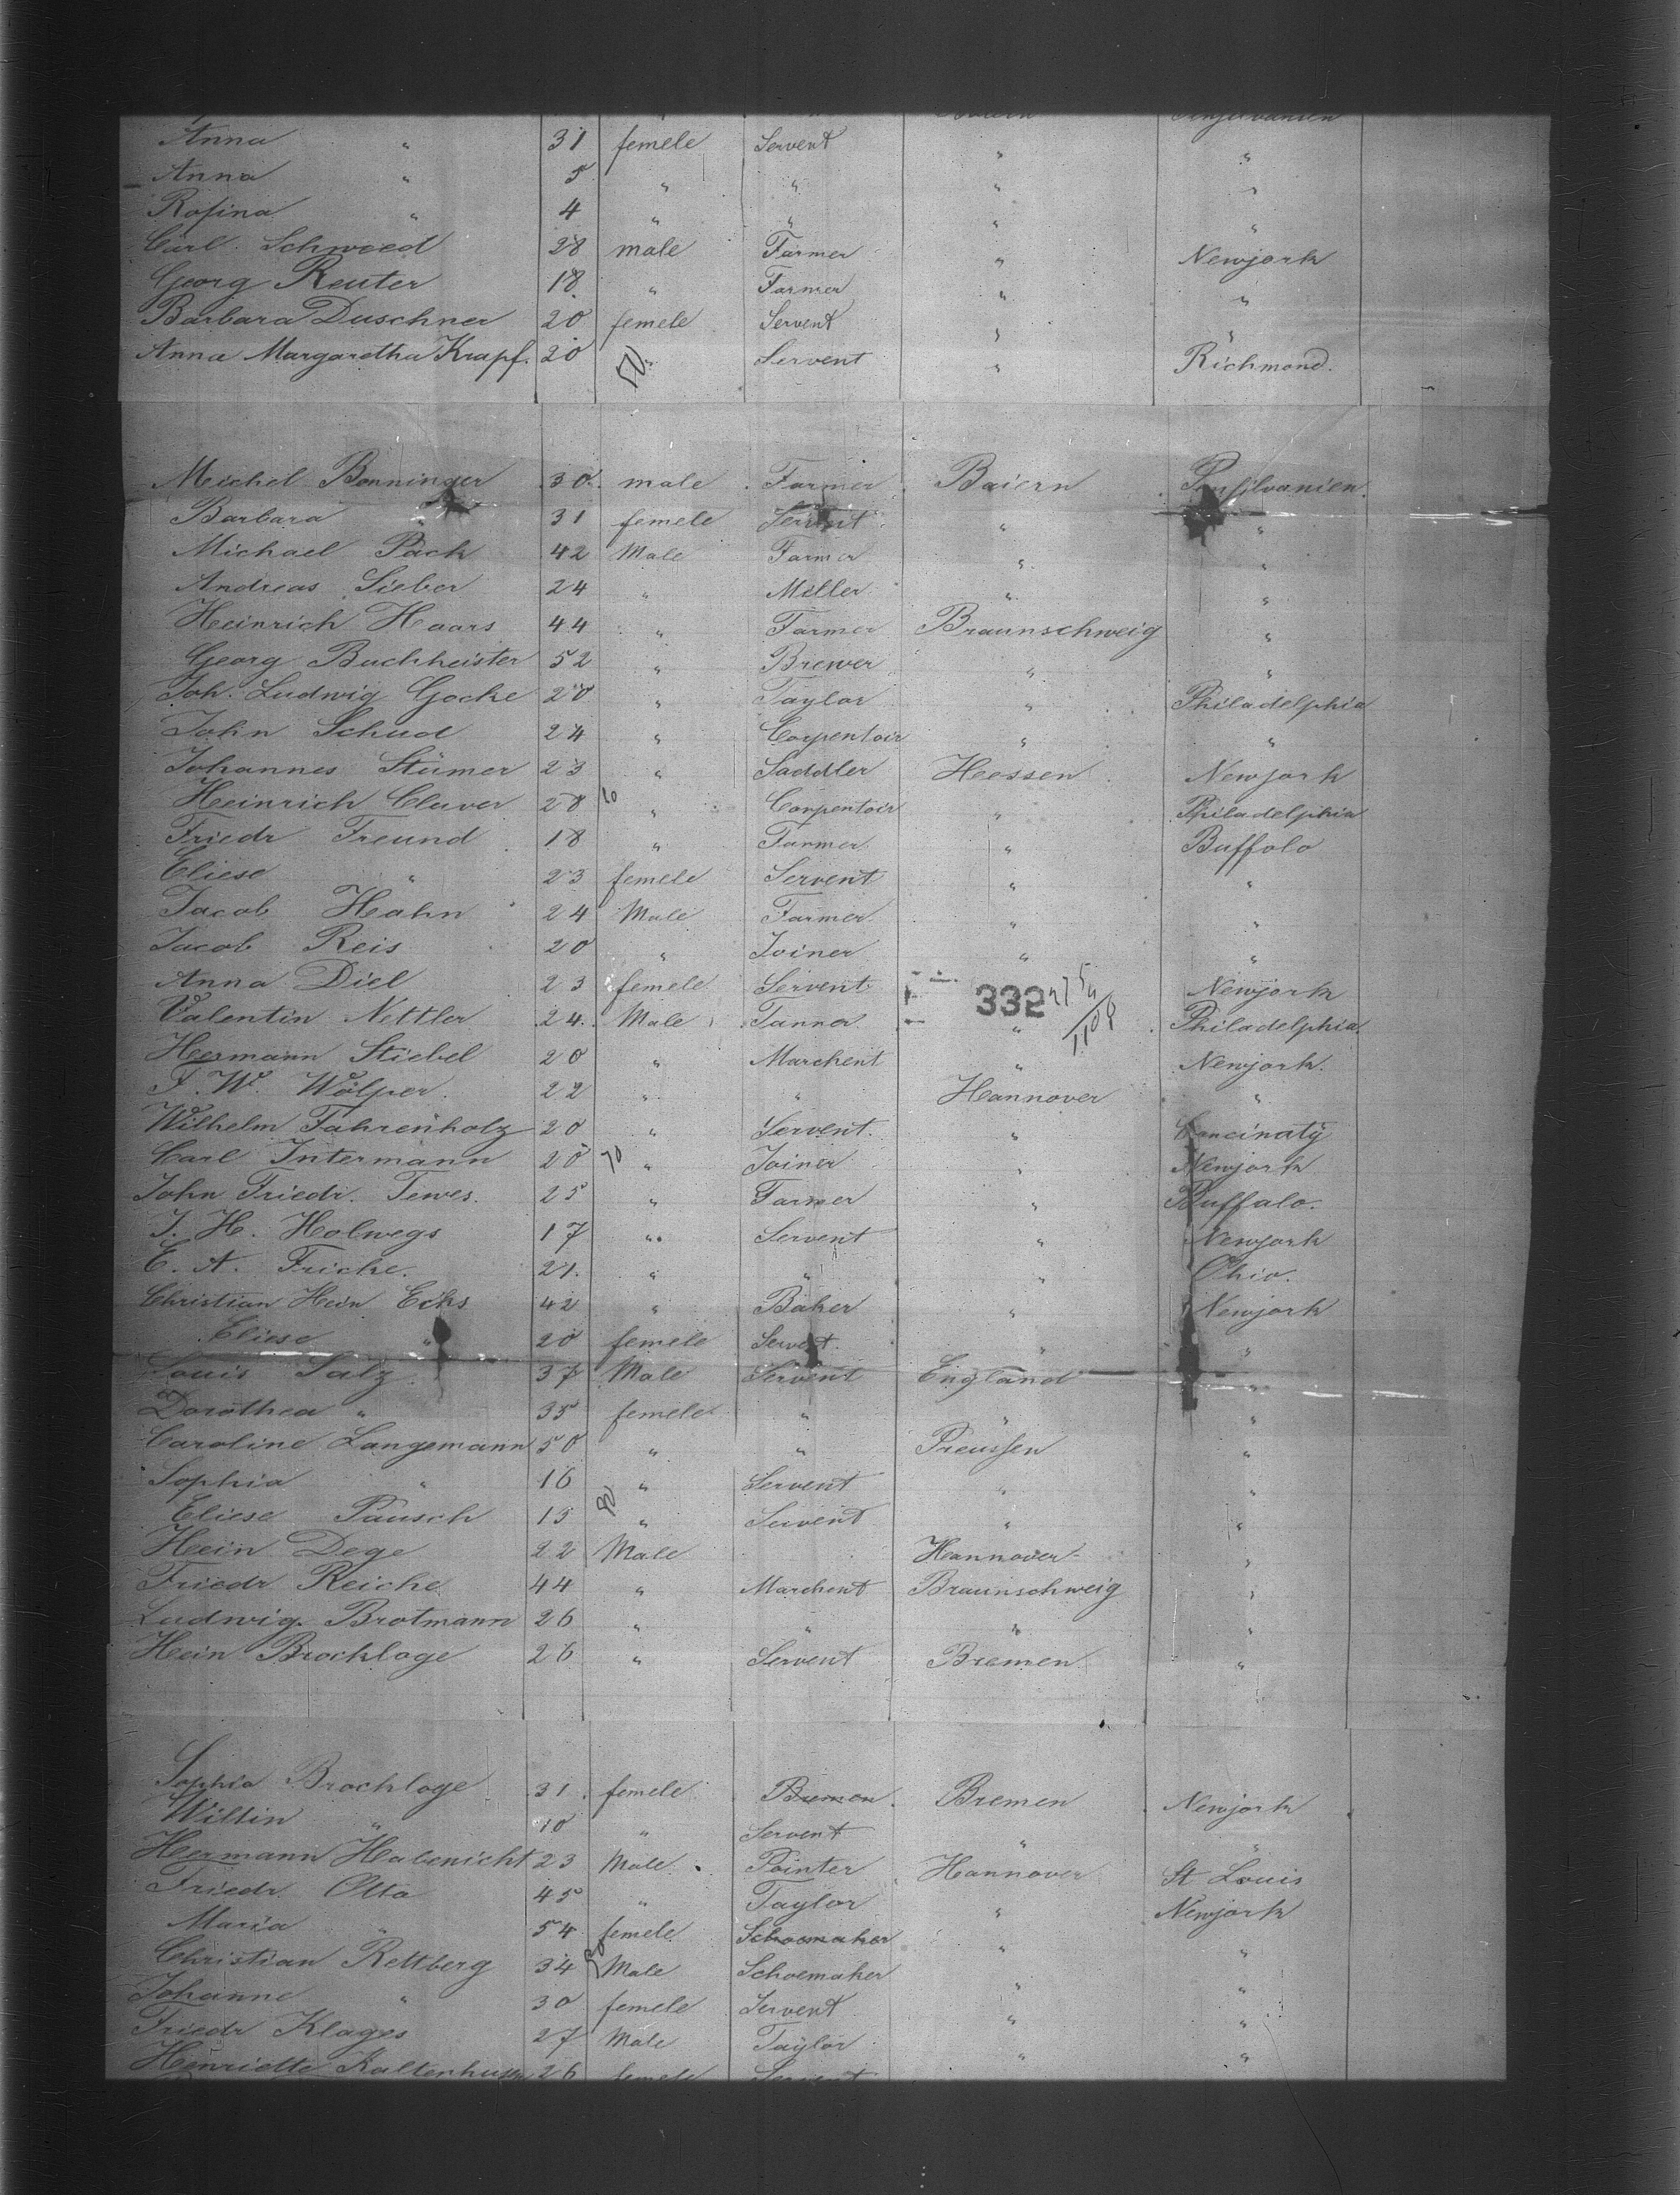 Anna " 31 femele Servent " "
Anna " 5 " " " "
Rosina " 4 " " " "
Carl Schwoed 28 male Farmer " Newjork
Georg Reuter 18 " Farmer " "
Barbara Duschner 20 femele Servent " "
Anna Margaretha Krapf. 20 50 " Servent " Richmond.
Meichel Bonninger 30. male Farmer Baiern Pensilvanien.
Barbara " 31 femele Servent " "
Michael Pach 42 Male Farmer " "
Andreas Sieber 24 " Meller " "
Heinrich Haars 44 " Farmer Braunschweig "
Georg Buchheister 52 " Brewer " "
Joh. Ludwig Gocke 20 " Taylor " Philadelphia
John Schud 24 " Corpentoir " "
Johannes Stümer 23 " Saddler Hessen Newjork
Heinrich Cluver 28 60 " Corpentoir " Philadelphia
Friedr Freund 18 " Farmer " Buffolo
Eliese " 23 femele Servent " "
Jacob Hahn 24 Male Farmer " "
Jacob Reis 20 " Joiner " "
Anna Diel 23 femele Servent " Newjork
332
Valentin Nettler 24. Male Tanner " Philadelphia
Heermann Stiebel 20 " Marchent " Newjork.
F. W. Wölper. 22 " " Hannover "
Wilhelm Fahrenholz 20 " Servent. " Cincinaty
Carl Intermann 20 70 " Joiner " Newjork
John Friedr. Tewes. 25 " Farmer " Buffalo.
J. H. Holwegs 17 " Servent " Newjork
E. A. Fricke. 21. " " " Ohio.
Christian Hein Ecks 42 " Baker " Newjork
Eliese " 20 femele Servent " "
Louis Salz 37 Male Servent England "
Dorothea " 35 femele " " "
Caroline Langemann 50 " " Preussen "
Sophia " 16 " Servent " "
Eliese Pausch 15 80 " Servent " "
Hein Dege 22 Male Hannover "
Friedr Reiche 44 " Marchent Braunschweig "
Ludwig Brotmann 26 " " " "
Hein Brockloge 26 " Servent Bremen "
Sophia Brockloge 31 femele Bremen Bremen Newjork
Wiltin " 10 " Servent " "
Hermann Habenicht 23 Male Pointer Hannover St Louis
Friedr. Otto 45 " Taylor " Newjork
Maria " 54 femele Schoemaker " "
Christian Rettberg 34 Male Schoemaker " "
Johanne " 30 femele Servent " "
Friedr Klages 27 Male Taylor " "
Henriette Kaltenhusen 26 femele Servent